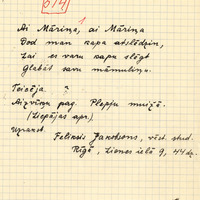 674
1
Ai Māriņa, ai Māriņa
Dod man kapa atslēdziņ,
Lai es varu kapu slēgt
Glabāt savu māmuliņu.
Teicēja ?
Aizviķu pag. Plepju muižā.
(Liepājas apr.)
Uzrakst. Felikss Jakobsons, vēst. stud.
Rīgā, Lienes ielā 9, 44 dz.